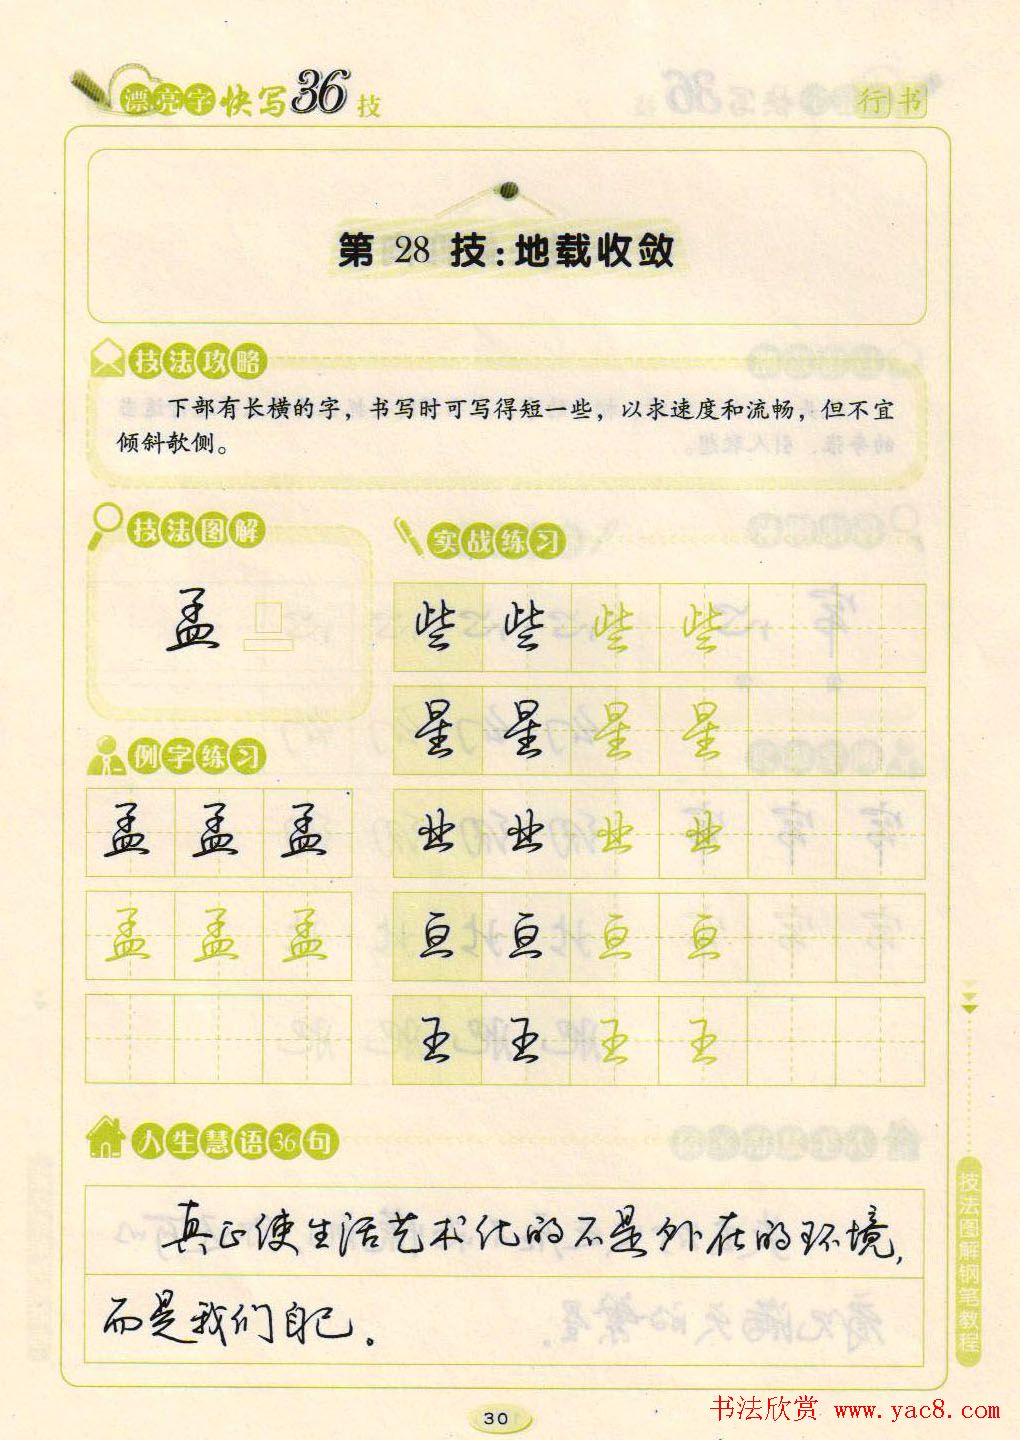 漂亮字快写36技
行书
第 28 技:地载收敛
技法攻略
下部有长横的字，书写时可写得短一些，以求速度和流畅，但不宜
倾斜欹侧。
技法图解
孟
实战练习
些 些 些 些
星 星 星 星
业 业 业 业
亘 亘 亘 亘
王 王 王 王
例字练习
孟 孟 孟
孟 孟 孟
人生慧语36句
真正使生活艺术化的不是外在的环境，
而是我们自己。
技法图解钢笔教程
30
书法欣赏 www.yac8.com